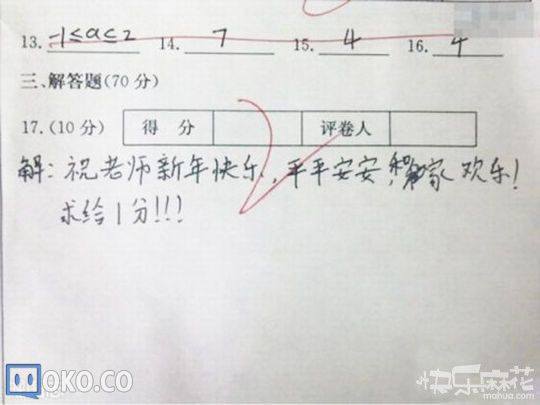 13. -1≤a≤2 14. 7 15. 4 16. 4
三、解答题(70分)
17.(10分) 得 分 评卷人
解:祝老师新年快乐,平平安安,家欢乐!
求给1分!!!
MOKO.CO
快乐麻花
mahua.com